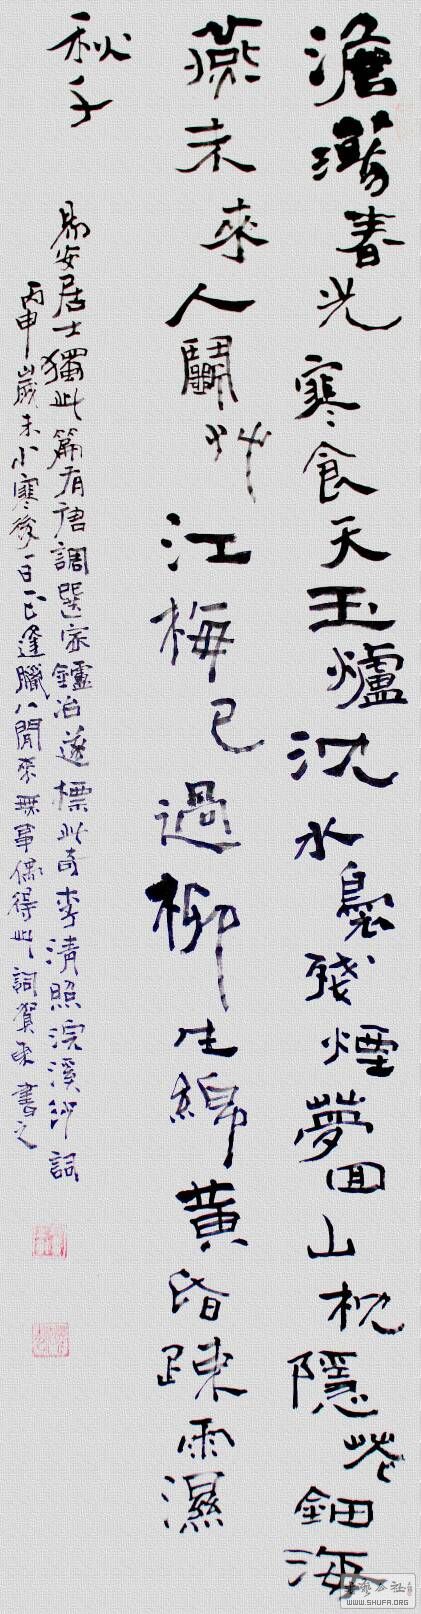 澹蕩春光寒食天玉爐沈水裊殘煙夢回山枕隱花鈿海
燕未來人鬭艸江梅已過柳生綿黃昏疎雨濕
秋千
易安居士獨此篇有唐調選家鑪冶遂標此奇李清照浣溪沙詞
丙申歲末小寒後一日正逢臘八閒來無事偶得此詞賀書之
WWW.SHUFA.ORG